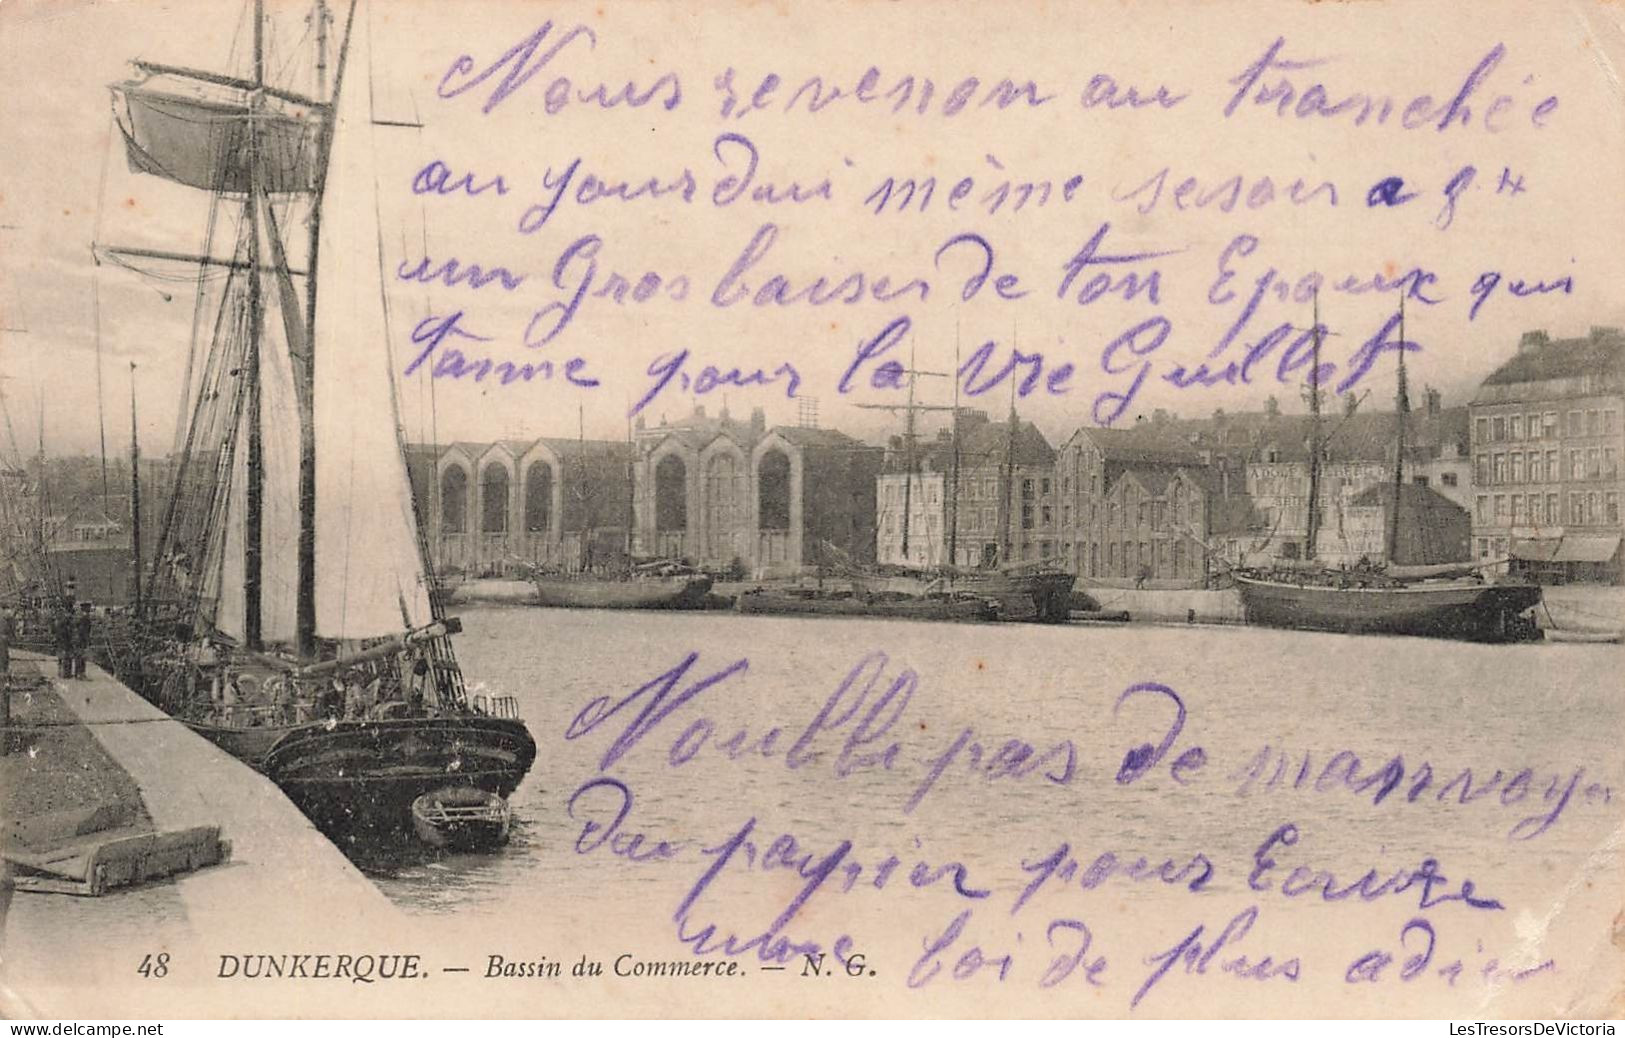 Nous revenon au tranchée
au jourdui même se soir a 9 H
un Gros baiser de ton Epoux qui
t'anme pour la vie Guillot
Noublli pas de manvoye
du papier pour Ecrire
une boi de plus adieu
48 DUNKERQUE. — Bassin du Commerce. — N. G.
LesTresorsDeVictoria